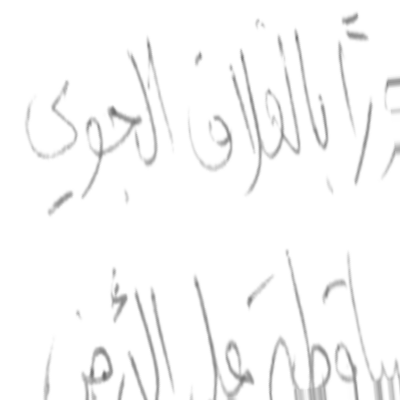 بالغلاف الجوي
ساقطة على الأرض